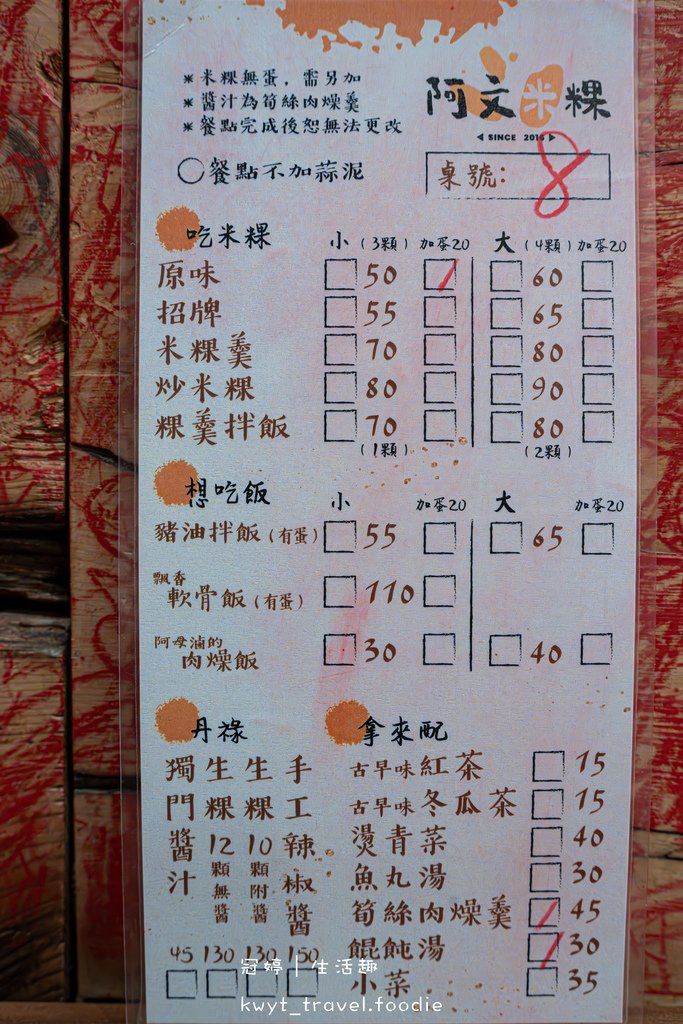 ＊米粿無蛋，需另加
＊醬汁為筍絲肉燥羹
＊餐點完成後恕無法更改
阿文米粿
SINCE 2016
○餐點不加蒜泥
桌號：8
吃米粿 小（3顆） 加蛋20 大（4顆） 加蛋20
原味 50 60
招牌 55 65
米粿羹 70 80
炒米粿 80 90
粿羹拌飯 70 80
（1顆） （2顆）
想吃飯 小 加蛋20 大 加蛋20
豬油拌飯（有蛋） 55 65
飄香
軟骨飯（有蛋） 110
阿母滷的
肉燥飯 30 40
丹祿
獨門醬汁 45
生粿12顆無醬 130
生粿10顆附醬 130
手工辣椒醬 150
拿來配
古早味紅茶 15
古早味冬瓜茶 15
燙青菜 40
魚丸湯 30
筍絲肉燥羹 45
餛飩湯 30
小菜 35
冠婷｜生活趣
kwyt_travel.foodie